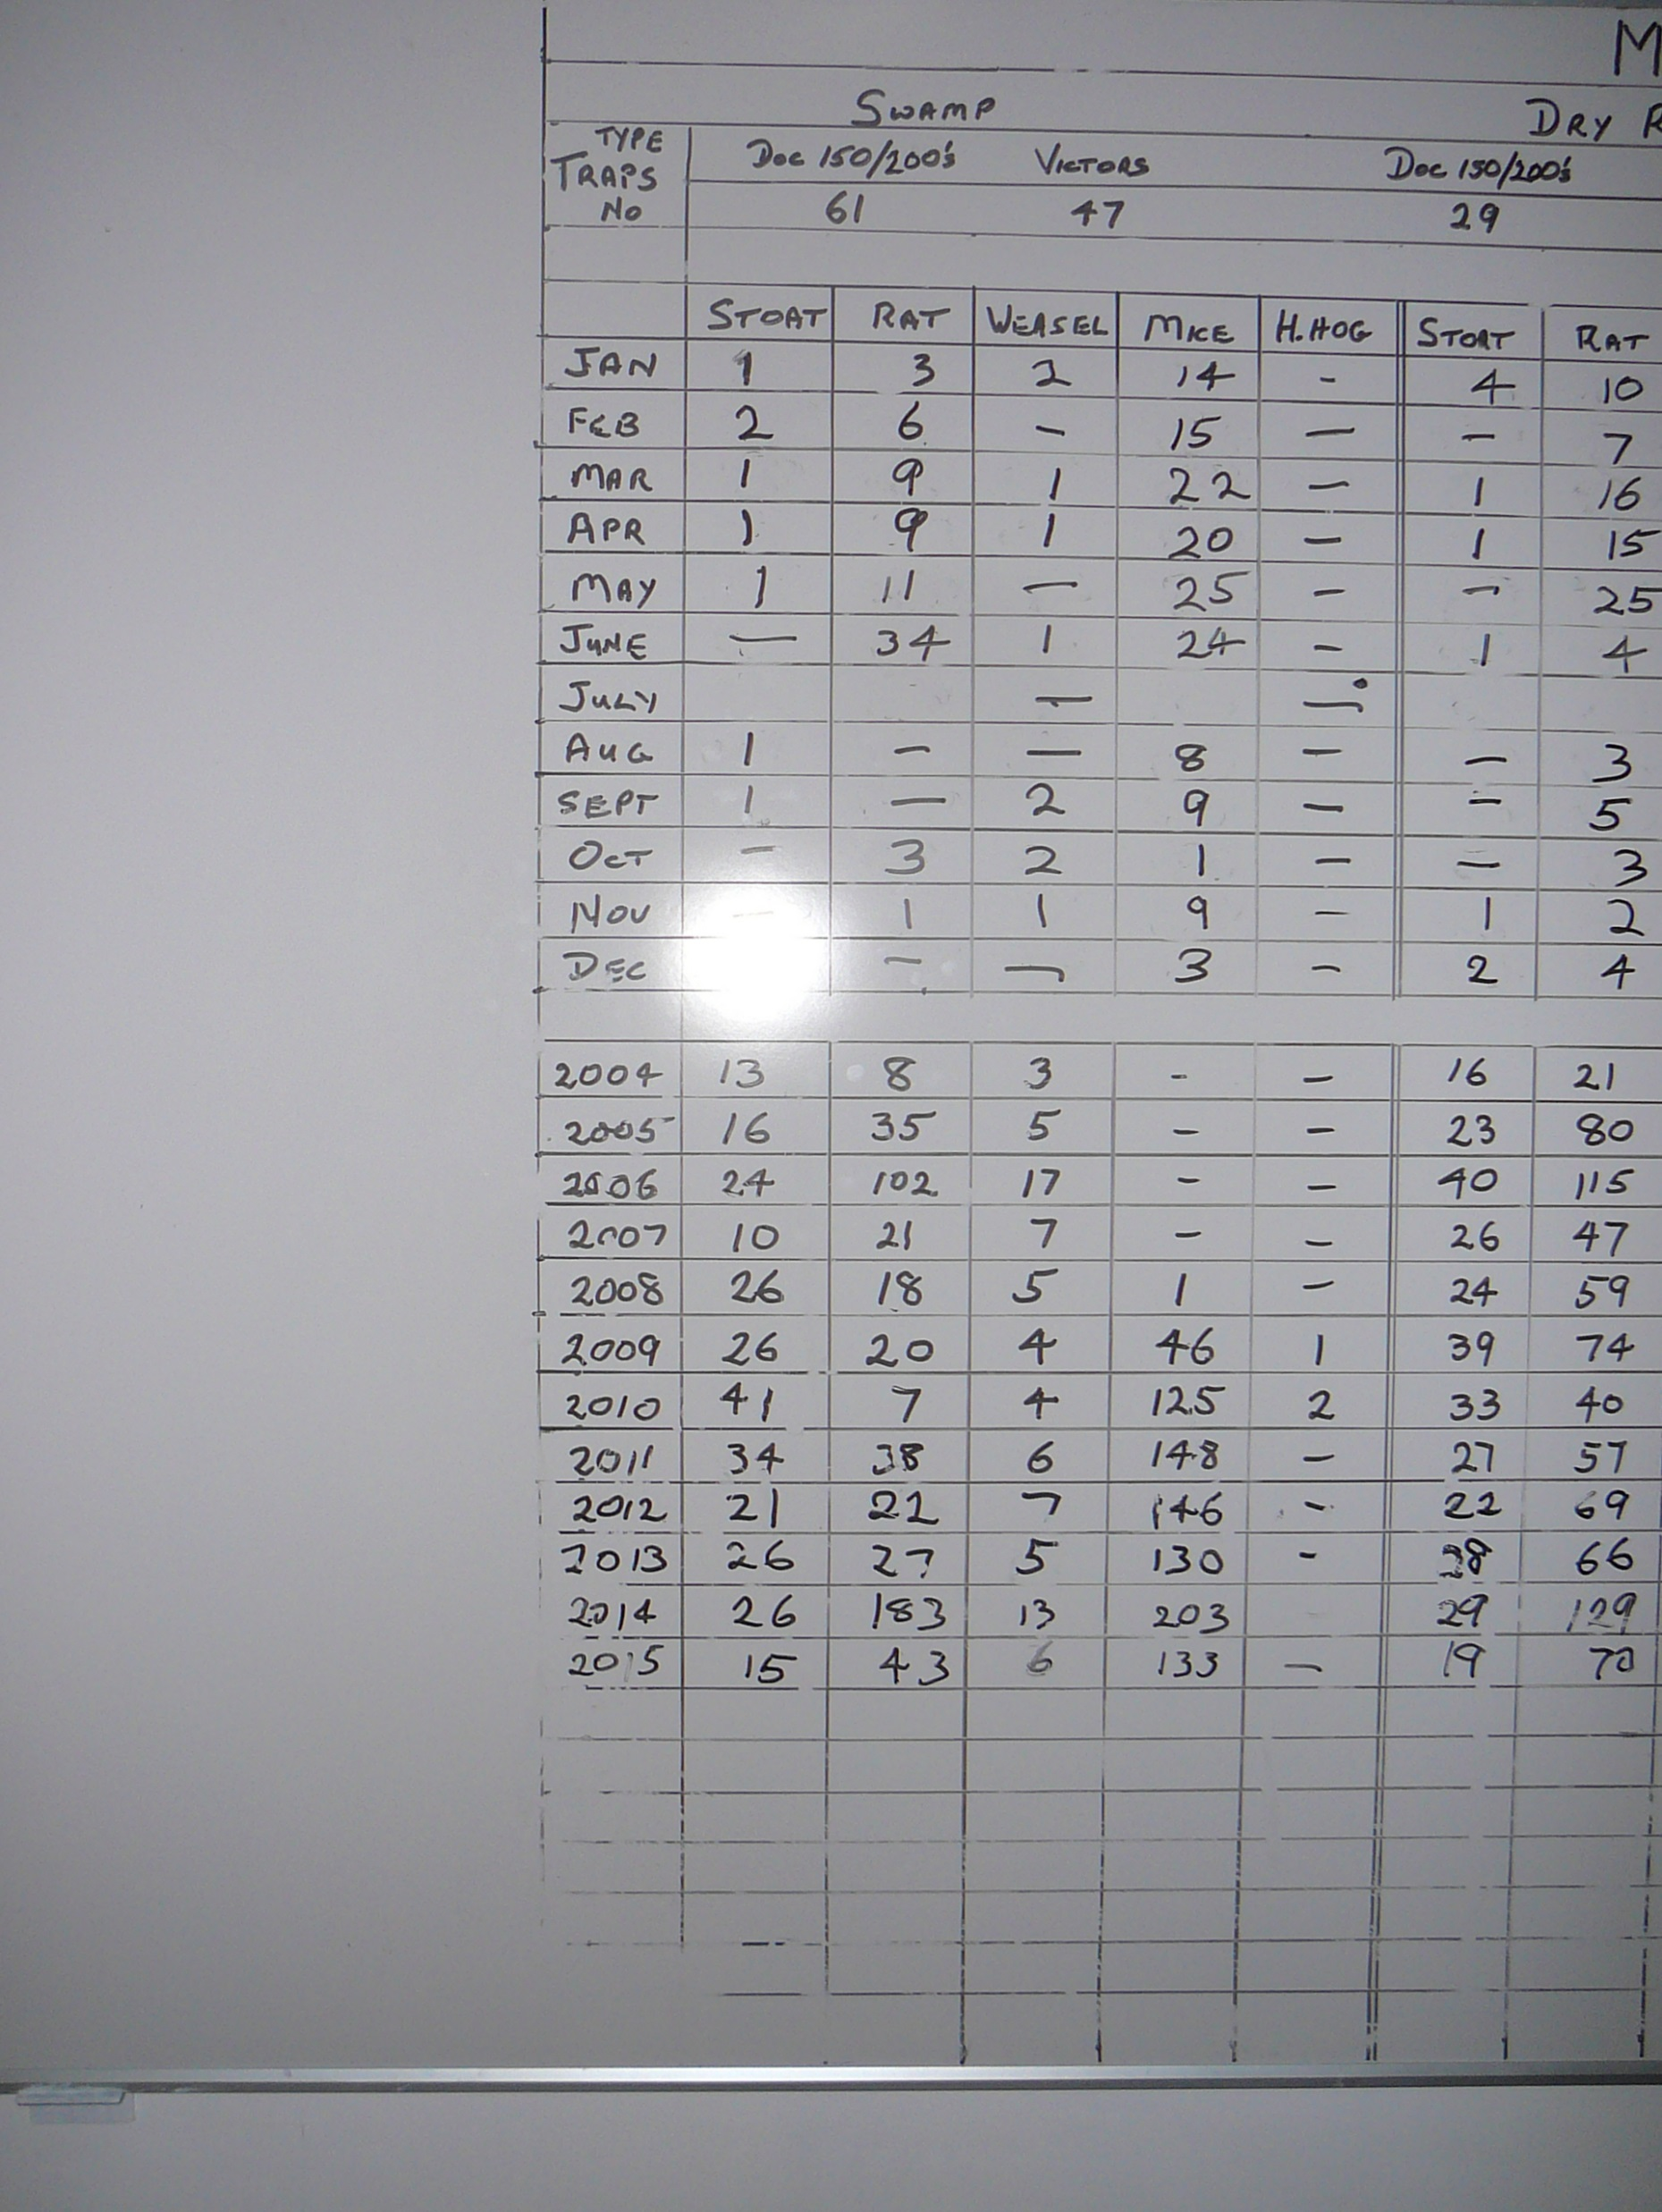 M
SWAMP DRY R
TYPE TRAPS No DOC 150/200's VICTORS DOC 150/200's
61 47 29
STOAT RAT WEASEL MICE H.HOG STOAT RAT
JAN 1 3 2 14 - 4 10
FEB 2 6 - 15 - - 7
MAR 1 9 1 22 - 1 16
APR 1 9 1 20 - 1 15
MAY 1 11 - 25 - - 25
JUNE - 34 1 24 - 1 4
JULY - -
AUG 1 - - 8 - - 3
SEPT 1 - 2 9 - - 5
OCT - 3 2 1 - - 3
NOV - 1 1 9 - 1 2
DEC - - 3 - 2 4
2004 13 8 3 - - 16 21
2005 16 35 5 - - 23 80
2006 24 102 17 - - 40 115
2007 10 21 7 - - 26 47
2008 26 18 5 1 - 24 59
2009 26 20 4 46 1 39 74
2010 41 7 4 125 2 33 40
2011 34 38 6 148 - 27 57
2012 21 22 7 146 - 22 69
2013 26 27 5 130 - 28 66
2014 26 183 13 203 29 129
2015 15 43 6 133 - 19